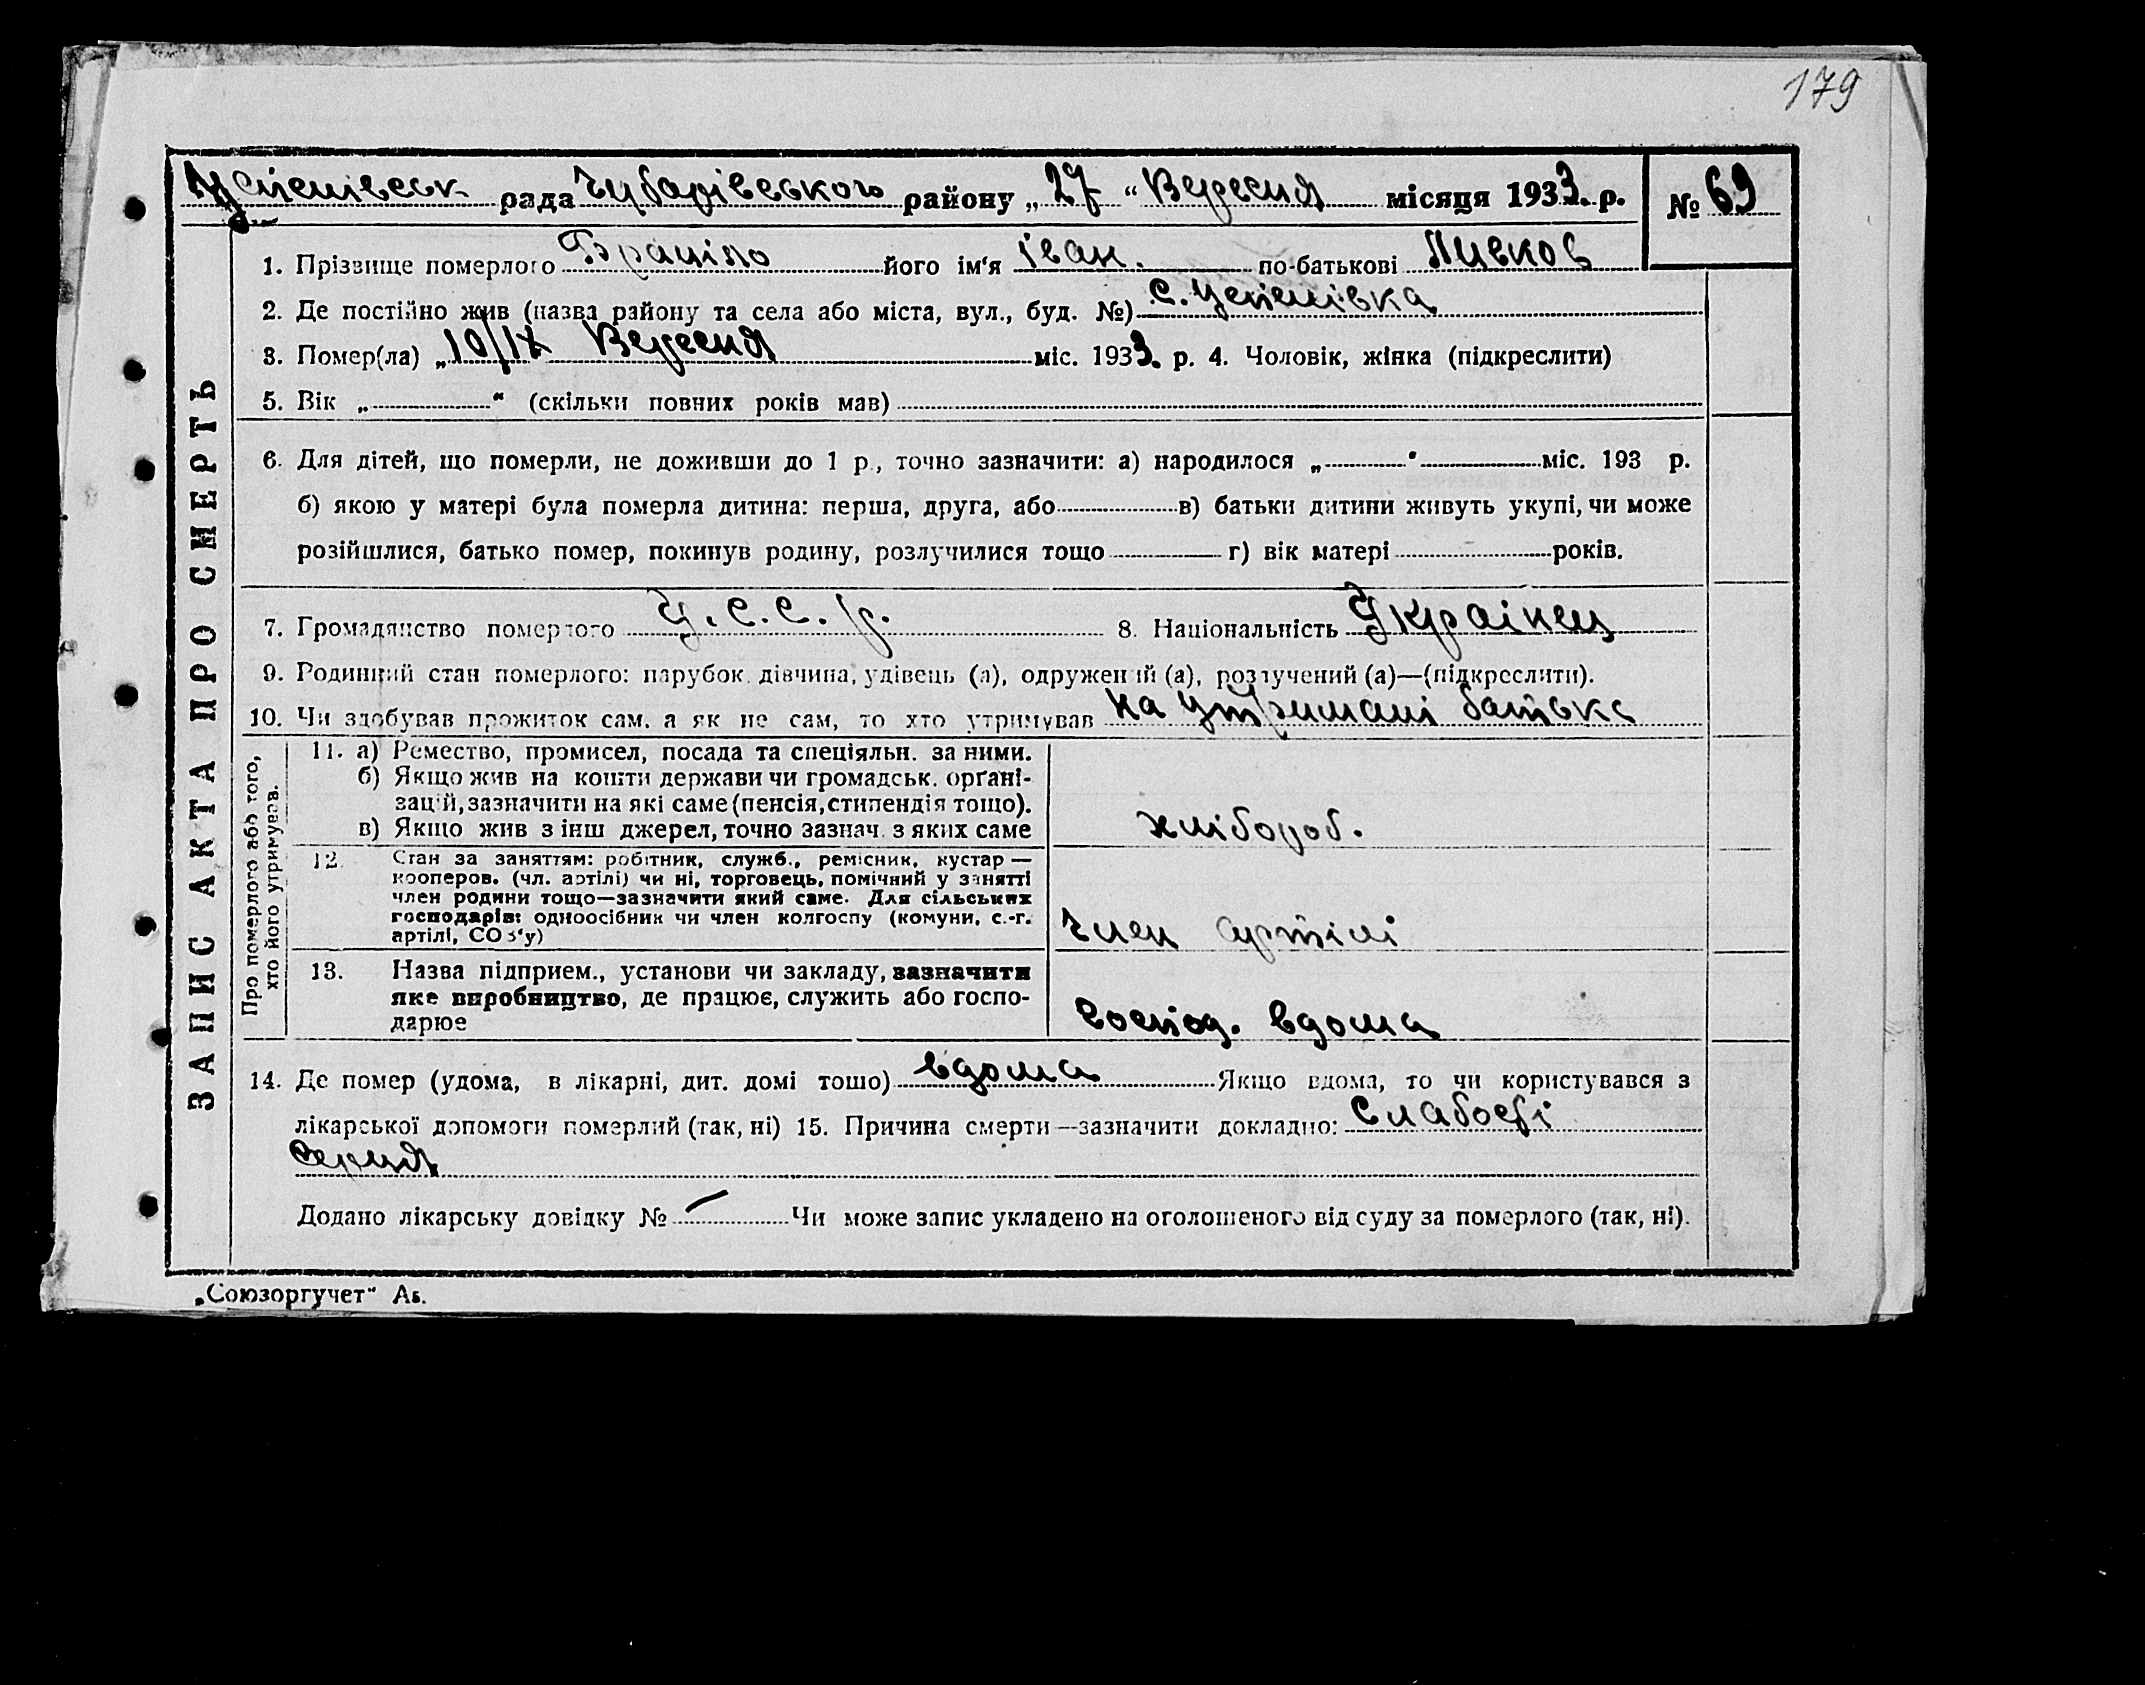 179
Успенівськ рада Чубарівського району „ 27 “ Вересня місяця 1933. р. № 69
1. Прізвище померлого Браціло його ім‘я Іван. по-батькові
2. Де постійно жив (назва району та села або міста, вул., буд. №) с. Успенівка
3. Помер(ла) „ 10/IX Вересня міс. 1933. р. 4. Чоловік, жінка (підкреслити)
5. Вік „ “ (скільки повних років мав)
6. Для дітей, що померли, не доживши до 1 р., точно зазначити: а) народилося „ “ міс. 193 р.
б) якою у матері була померла дитина: перша, друга, або в) батьки дитини живуть укупі, чи може
розійшлися, батько помер, покинув родину, розлучилися тощо г) вік матері років.
7. Громадянство померлого У.С.С.Р. 8. Національність Українец
9. Родинний стан померлого: парубок, дівчина, удівець (а), одружений (а), розлучений (а)—(підкреслити).
10. Чи здобував прожиток сам, а як не сам, то хто утримував на утримані батька
ЗАПИС АКТА ПРО СМЕРТЬ
Про померлого або того,
хто його утримував.
11. а) Ремество, промисел, посада та спеціяльн. за ними.
б) Якщо жив на кошти держави чи громадськ. орґані-
зацій, зазначити на які саме (пенсія, стипендія тощо).
в) Якщо жив з інш джерел, точно зазнач. з яких саме
хлібороб.
12. Стан за заняттям: робітник, служб., ремісник, кустар —
кооперов. (чл. артілі) чи ні, торговець, помічний у занятті
член родини тощо—зазначити який саме. Для сільських
господарів: одноосібник чи член колгоспу (комуни, с.-г.
артілі, СОЗ‘у)
член артілі
13. Назва підприєм., установи чи закладу, зазначити
яке виробництво, де працює, служить або госпо-
дарює
Господ. вдома
14. Де помер (удома, в лікарні, дит. домі тощо) вдома Якщо вдома, то чи користувався з
лікарської допомоги померлий (так, ні) 15. Причина смерти—зазначити докладно: Слабості
серця
Додано лікарську довідку № — Чи може запис укладено на оголошеного від суду за померлого (так, ні).
„Союзоргучет“ Аб.